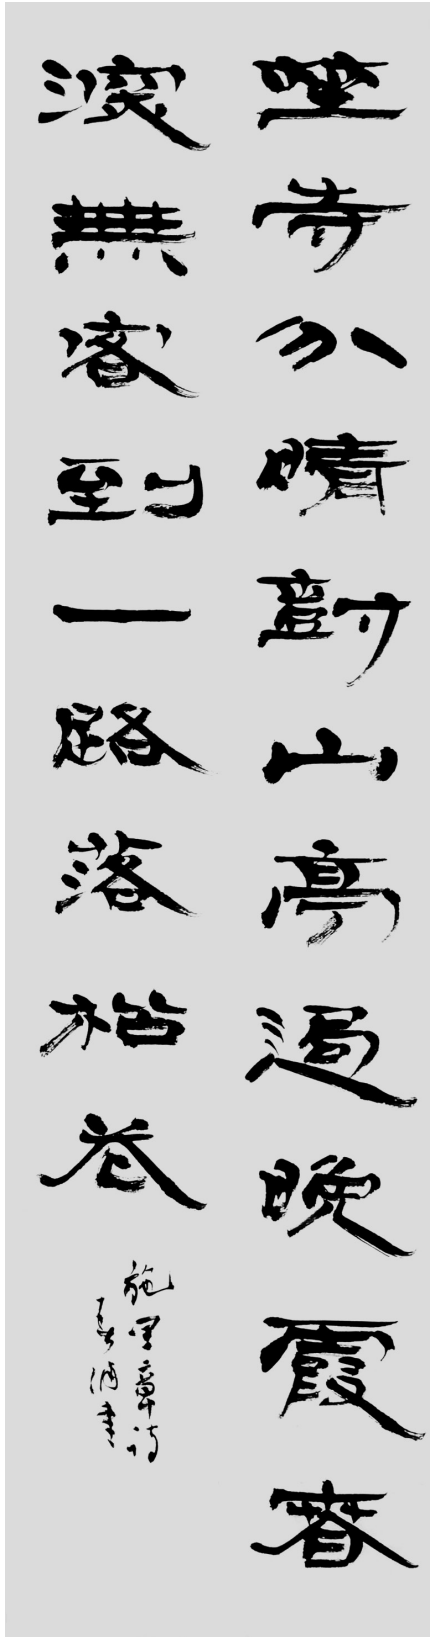 埜寺分晴尌山亭過晚霞春
深無客到一路落柗花
施閏章詩
書